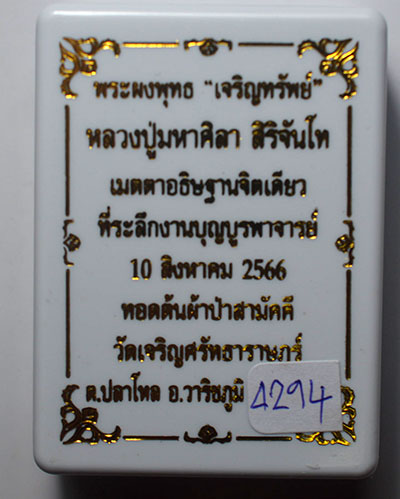 พระผงพุทธ "เจริญทรัพย์"
หลวงปู่มหาศิลา สิริจันโท
เมตตาอธิษฐานจิตเดียว
ที่ระลึกงานบุญบูรพาจารย์
10 สิงหาคม 2566
ทอดต้นผ้าป่าสามัคคี
วัดเจริญศรัทธาราษฎร์
ต.ปลาโหล อ.วาริชภูมิ
4294